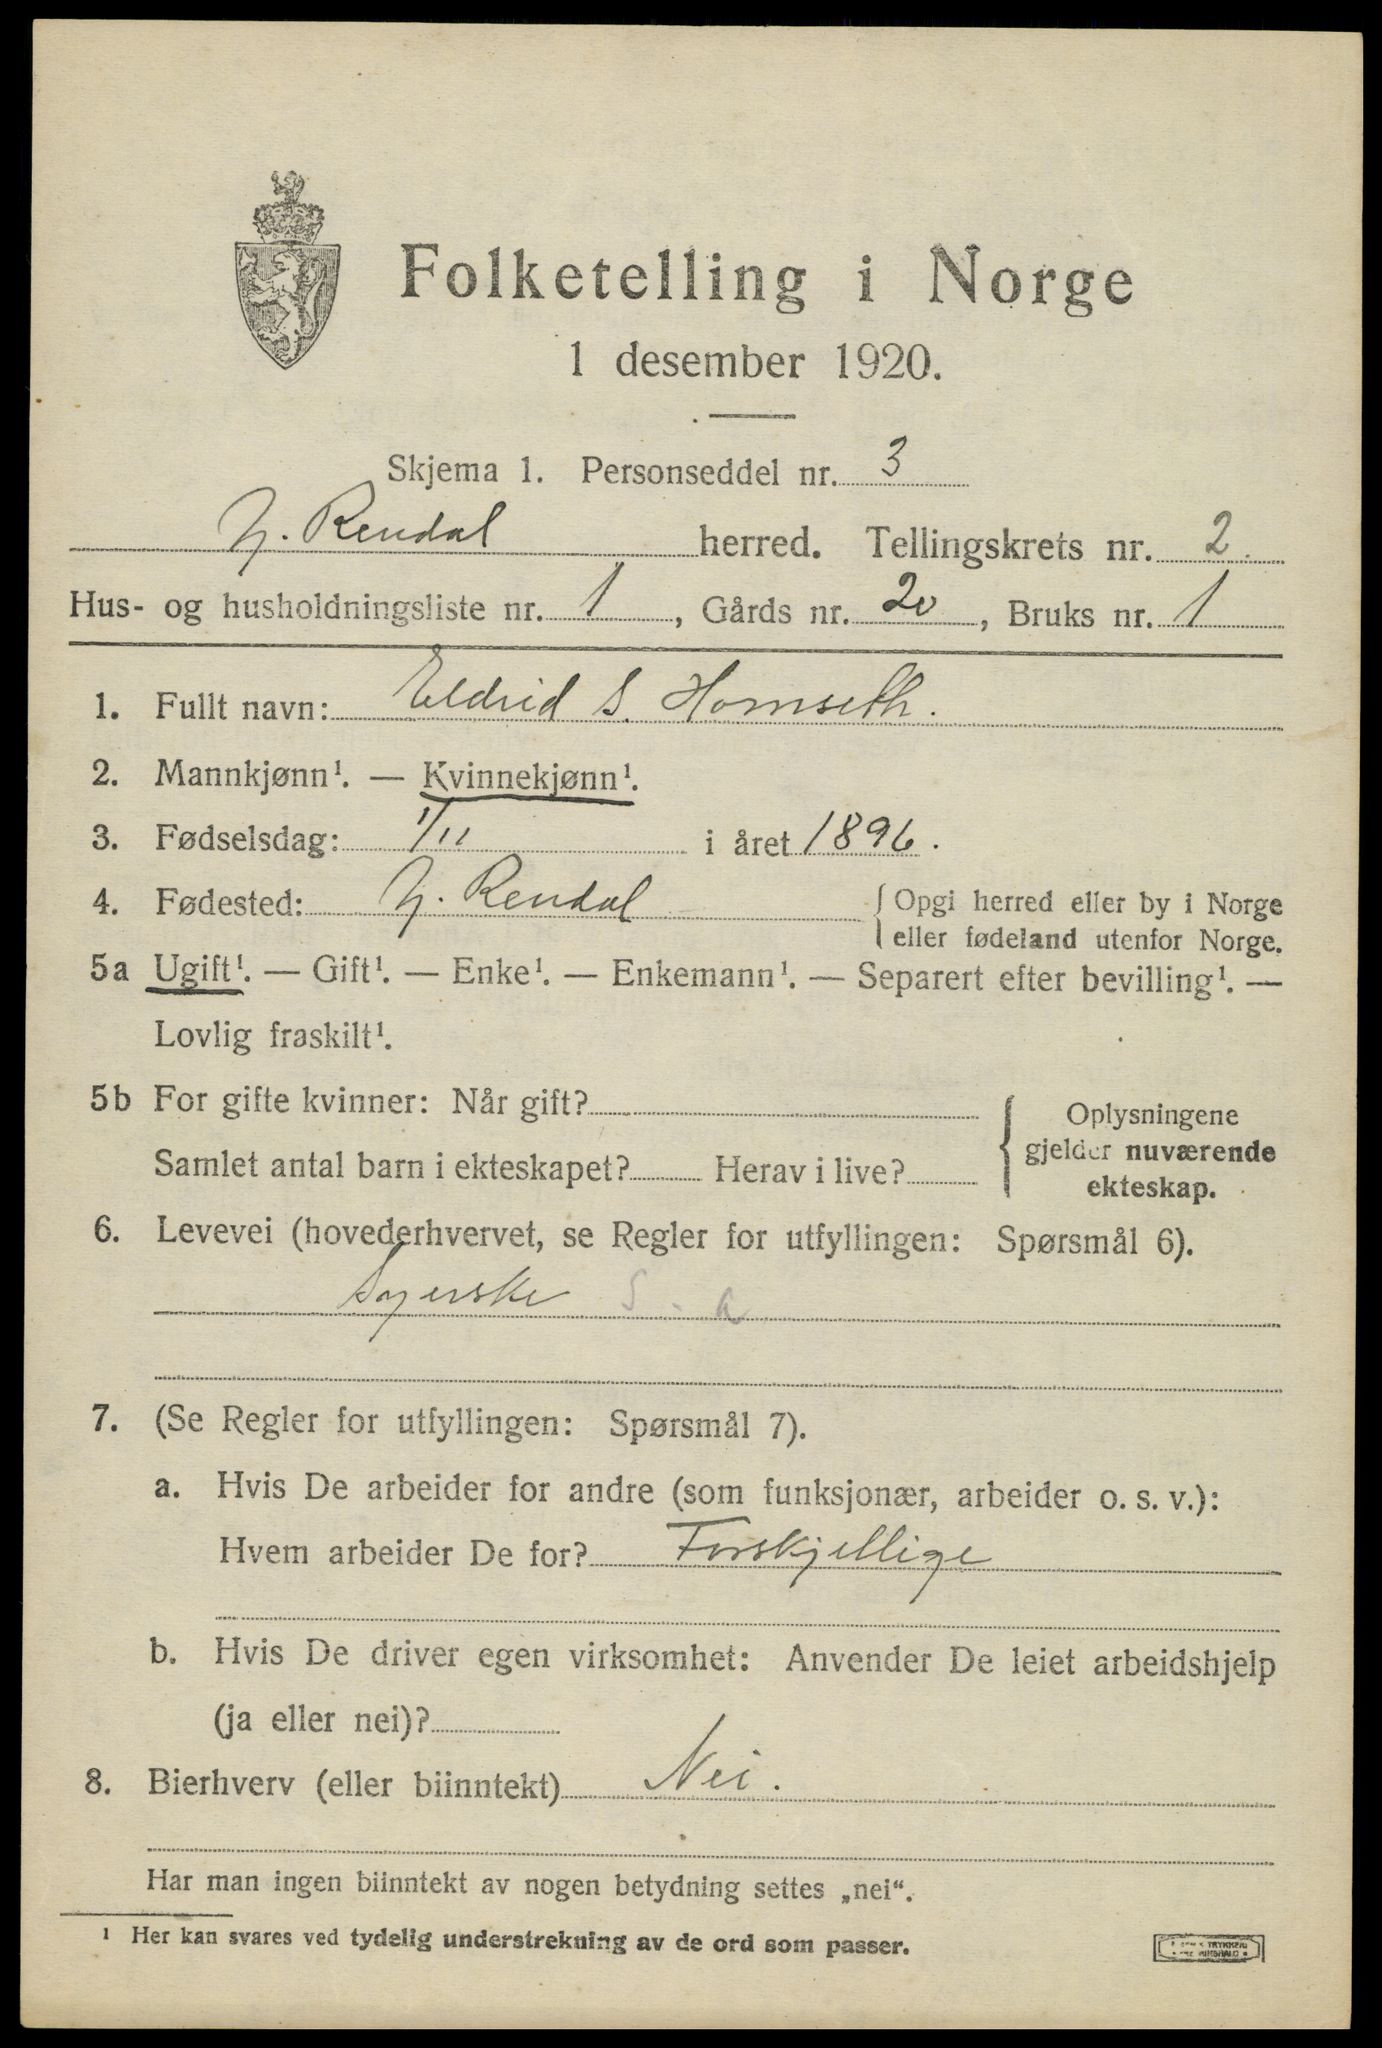 Folketelling i Norge
1 desember 1920.
Skjema 1. Personseddel nr. 3
Y. Rendal herred. Tellingskrets nr. 2
Hus- og husholdningsliste nr. 1, Gårds nr. 20, Bruks nr. 1
1. Fullt navn: Eldrid S. Hornseth.
2. Mannkjønn¹. — Kvinnekjønn¹.
3. Fødselsdag: 1/11 i året 1896.
4. Fødested: Y. Rendal { Opgi herred eller by i Norge
eller fødeland utenfor Norge.
5a Ugift¹. — Gift¹. — Enke¹. — Enkemann¹. — Separert efter bevilling¹. —
Lovlig fraskilt¹.
5b For gifte kvinner: Når gift?
Samlet antal barn i ekteskapet? Herav i live?
{ Oplysningene
gjelder nuværende
ekteskap.
6. Levevei (hovederhvervet, se Regler for utfyllingen: Spørsmål 6).
Syerske S. a
7. (Se Regler for utfyllingen: Spørsmål 7).
a. Hvis De arbeider for andre (som funksjonær, arbeider o. s. v.):
Hvem arbeider De for? Forskjellige
b. Hvis De driver egen virksomhet: Anvender De leiet arbeidshjelp
(ja eller nei)?
8. Bierhverv (eller biinntekt) Nei.
Har man ingen biinntekt av nogen betydning settes „nei“.
¹ Her kan svares ved tydelig understrekning av de ord som passer.